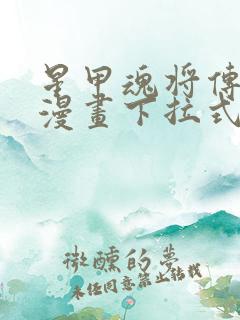 星甲魂将傳
漫畫下拉式
微醺的夢
未经同意禁止转载